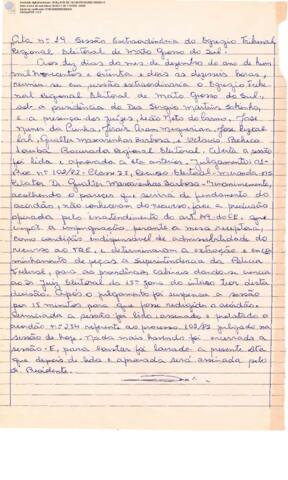 Ata nº 29. Sessão Extraordinária do Egrégio Tribunal
Regional Eleitoral de Mato Grosso do Sul.
Aos dez dias do mês de dezembro do ano de hum
mil novecentos e oitenta e dois às dezesseis horas,
reuniu-se em sessão extraordinária o Egrégio Tribu-
nal Regional Eleitoral de Mato Grosso do Sul,
sob a presidência do Des Sergio Martins Sobrinho,
e a presença dos juízes, Leão Neto do Carmo, José
Nunes da Cunha, Jesus
José Rizkal-
lah, Gualter Mascarenhas Barbosa e
Pacheco
Procurador Regional Eleitoral. Aberta a sessão
foi lida e aprovada a ata anterior. Julgamento: 01-
Proc nº 102/82 - Classe II, Recurso Eleitoral - Miranda - MS
Relator Dr Gualter Mascarenhas Barbosa - "Unanimemente,
acolhendo o parecer que servirá de fundamento do
acórdão, não conheceram do recurso, face a preclusão
operada pelo inatendimento do art. 149 do CE, que
a impugnação perante a mesa receptora,
como condição indispensável de admissibilidade do
recurso ao TRE, e determinaram a extração e enca-
minhamento de peças à Superintendência da Polícia
Federal, para as providências cabíveis dando-se ciência
ao Dr Juiz Eleitoral da 15ª zona do inteiro teor desta
decisão. Após o julgamento foi suspensa a sessão
por 15 minutos para que fosse redigido o acórdão.
Reiniciada a sessão foi lido, assinado e
o
acórdão nº 254 referente ao processo 102/82 julgado na
sessão de hoje. Nada mais havendo foi encerrada a
sessão. E, para constar foi lavrada a presente Ata
que depois de lida e aprovada será assinada pelo
Sr. Presidente.